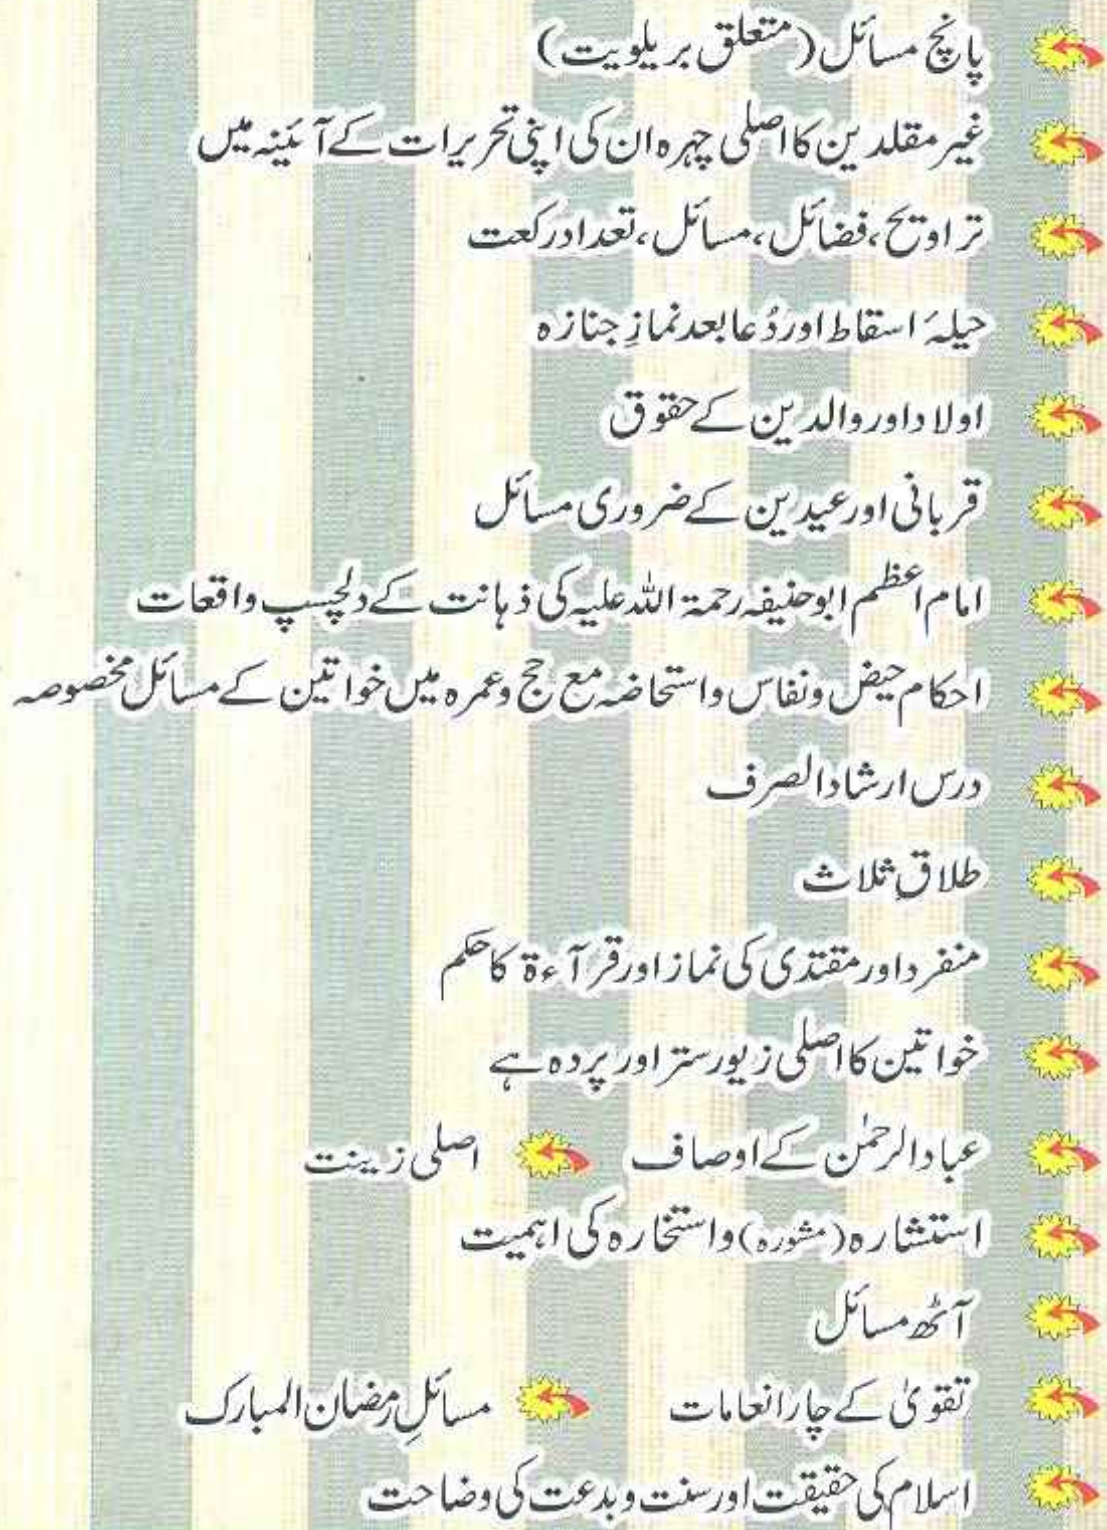 پانچ مسائل (متعلق بریلویت)
غیر مقلدین کا اصلی چہرہ ان کی اپنی تحریرات کے آئینہ میں
تراویح، فضائل، مسائل، تعداد رکعت
حیلۂ اسقاط اور دُعا بعد نمازِ جنازہ
اولاد اور والدین کے حقوق
قربانی اور عیدین کے ضروری مسائل
امام اعظم ابوحنیفہ رحمۃ اللہ علیہ کی ذہانت کے دلچسپ واقعات
احکام حیض ونفاس واستحاضہ مع حج وعمرہ میں خواتین کے مسائل مخصوصہ
درس ارشاد الصرف
طلاقِ ثلاث
منفرد اور مقتدی کی نماز اور قرآءة کا حکم
خواتین کا اصلی زیور ستر اور پردہ ہے
عباد الرحمٰن کے اوصاف اصلی زینت
استشارہ (مشورہ) واستخارہ کی اہمیت
آٹھ مسائل
تقویٰ کے چار انعامات مسائلِ رمضان المبارک
اسلام کی حقیقت اور سنت وبدعت کی وضاحت